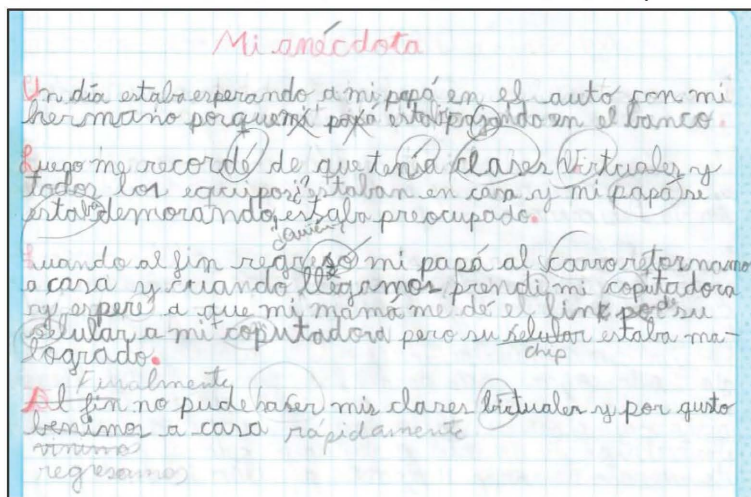 Mi anécdota
Un día estaba esperando a mi papá en el auto con mi
hermano porque mi papá estaba pagando en el banco.
Luego me recordé de que tenía clases virtuales y
todos los equipos estaban en casa y mi papá se
estaba demorando, estaba preocupado.
¿quién?
Cuando al fin regresó mi papá al carro retornamo
a casa y cuando llegamos prendi mi coputadora
y esperé a que mi mamá me dé el link por su
selular a mi coputadora pero su selular estaba ma-
chip
logrado.
Finalmente
Al fin no pude haser mis clases birtuales y por gusto
benimos a casa rápidamente
vinimos
regresamos